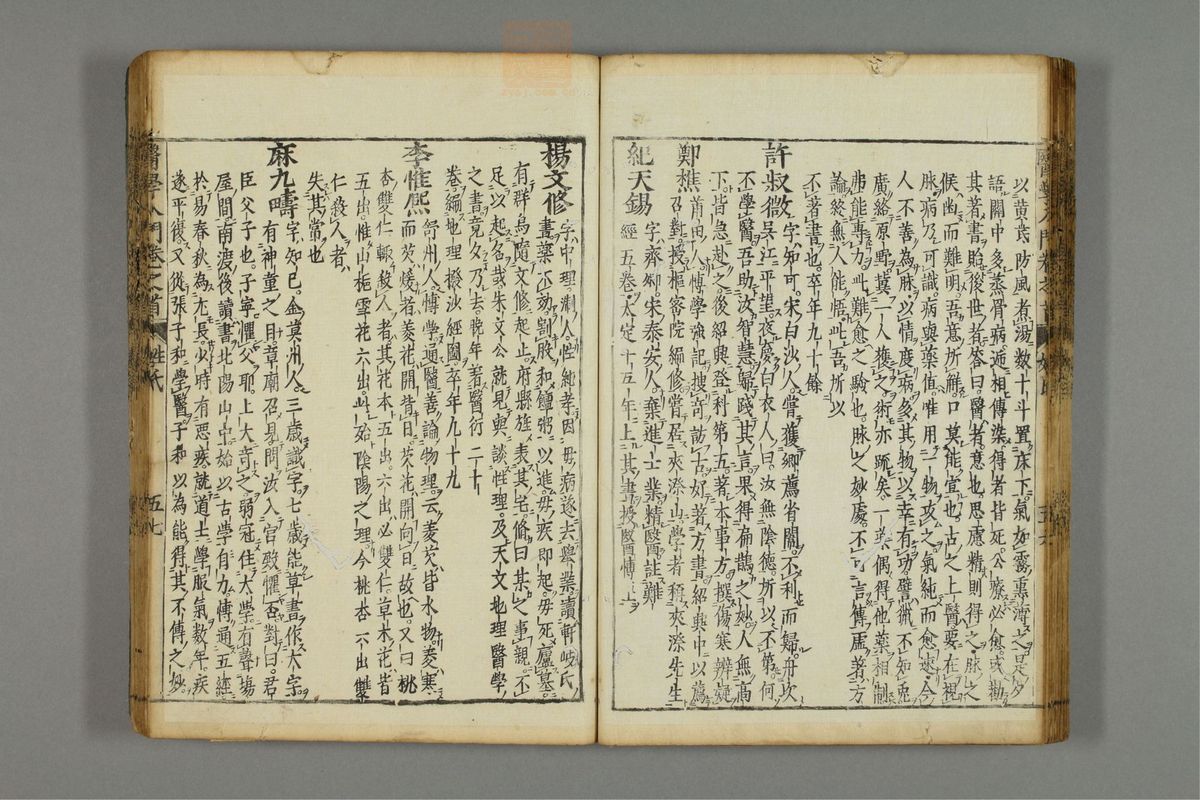 以黃芪防風煮湯数十斗置床下氣如霧熏薄之是夕
語關中多蒸骨病遞相傳染得者皆死公療必愈或勸
其著書貽後世者答曰醫者意也思慮精則得之脉之
候幽而難明吾意所解口莫能宣也古之上醫要在視
脉病乃可識病與藥值唯用一物攻之氣純而愈速今
人不善為脉以情度病多其物以幸有功譬獵不知兎
廣絡原野冀一人獲之術亦疏矣一藥偶得他藥相制
弗能專力此難愈之驗也脉之妙處不可言傳虛著方
論終無人能悟此吾所以
不著書也卒年九十餘
許叔微 字知可宋白沙人嘗獲鄉薦省闈不利而歸舟次
吳江平望夜夢白衣人曰汝無陰德所以不第何
不學醫吾助汝智慧歸踐其言果得扁鵲之妙人無高
下皆急赴之後紹興登科第五著本事方撰傷寒辨疑
鄭樵 莆田人博學強記搜奇訪古好著方書紹興中以薦
召對授樞密院編修嘗居夾漈山學者稱夾漈先生
紀天錫 字齊卿宋泰安人棄進士業精醫註難
經五卷大定十五年上其書授醫博士
楊文修 字中理浙人性純孝因母病遂去舉業讀軒岐氏
書藥不効割股和饘粥以進母疾即起母死廬墓
有群烏隨文修起止府縣旌表其宅脩曰某之事親不
足以起名哉朱文公就見與談性理及天文地理醫學
之書竟夕乃去晚年著醫衍二十
卷編地理撥沙經圖卒年九十九
李惟熙 舒州人博學通醫善論物理云菱芡皆水物菱寒
而芡煖者菱花開背日芡花開向日故也又曰桃
杏雙仁輒殺人者其花本五出六出必雙仁草木花皆
五出惟山梔雪花六出此殆陰陽之理今桃杏六出雙
仁殺人者
失其常也
麻九疇 字知己金莫州人三歲識字七歲能草書作大字
有神童之目章廟召見問汝入宮殿懼否對曰君
臣父子也子寧懼父耶上大奇之弱冠住太學有聲場
屋間南渡後讀書北陽山中始以古學自力博通五經
於易春秋為尤長少時有惡疾就道士學服氣数年疾
遂平復又從張子和學醫子和以為能得其不傳之妙
醫學入門卷之首 姓氏 五七